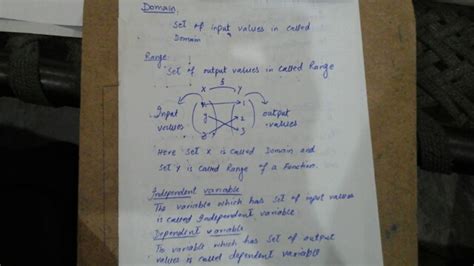 Domain,
Set of input values in called
Domain
Range:
Set of output values in called Range
f
X Y
Input values
x 1
y 2
z 3
output values
Here Set X is called Domain and
Set Y is called Range of a Function.
Independent variable
The variable which has set of input values
is called Independent variable
Dependent variable
The variable which has set of output
values is called dependent variable